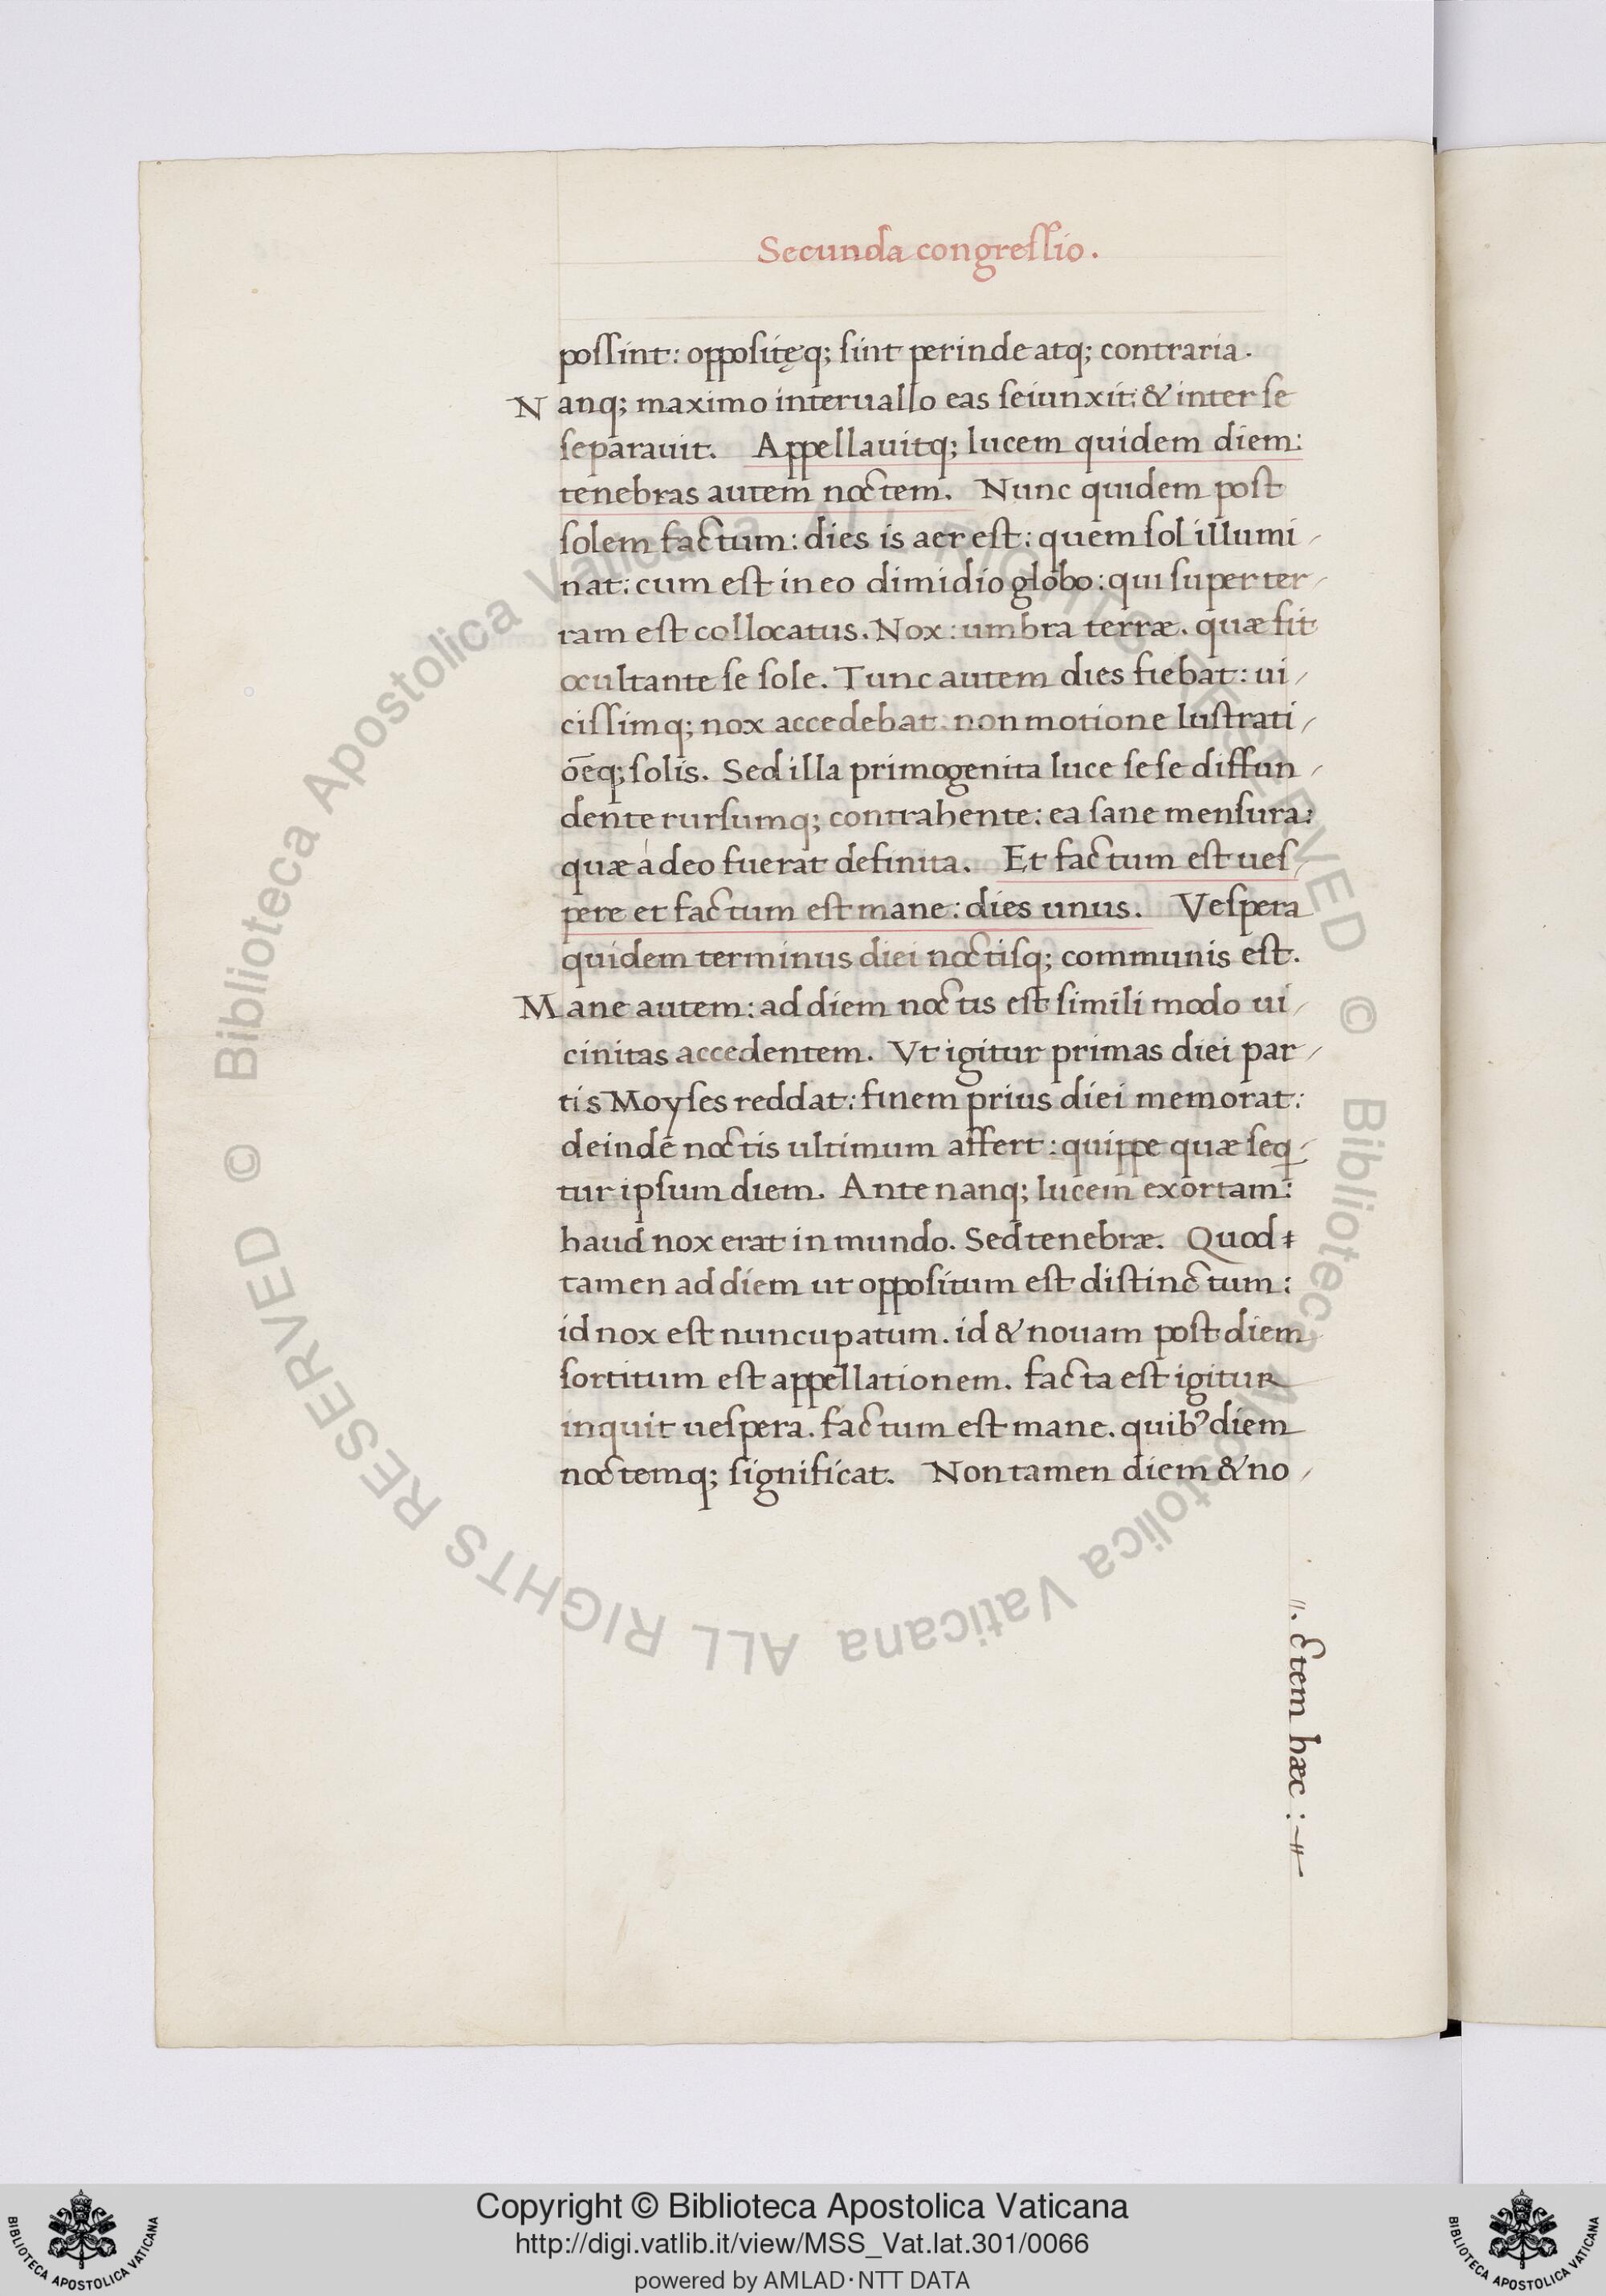 Secunda congreſſio.
poſſint: oppoſitęq; ſint perinde atq; contraria.
Nanq; maximo interuallo eas ſeiunxit: & inter ſe
ſeparauit. Appellauitq; lucem quidem diem:
tenebras autem noctem. Nunc quidem poſt
ſolem factum: dies is aer eſt: quem ſol illumi
nat: cum eſt in eo dimidio globo: qui ſuper ter
ram eſt collocatus. Nox: umbra terræ. quæ fit
occultante ſe ſole. Tunc autem dies fiebat: ui
ciſſimq; nox accedebat non motione luſtrati
õeq; ſolis. Sed illa primogenita luce ſeſe diffun
dente rurſumq; contrahente: ea ſane menſura:
quæ á deo fuerat definita. Et factum eſt ueſ
pere et factum eſt mane: dies unus. Veſpera
quidem terminus diei noctiſq; communis eſt.
Mane autem: ad diem noctis eſt ſimili modo ui
cinitas accedentem. Vt igitur primas diei par
tis Moyſes reddat: finem prius diei memorat:
deinde noctis ultimum affert: quippe quæ ſeq
tur ipſum diem. Ante nanq; lucem exortam:
haud nox erat in mundo. Sed tenebræ. Quod
tamen ad diem ut oppoſitum eſt diſtinctum:
id nox eſt nuncupatum. id & nouam poſt diem
ſortitum eſt appellationem. facta eſt igitur
inquit ueſpera. factum eſt mane. quibꝰ diem
noctemq; ſignificat. Non tamen diem & no
ctem hæc:
© Biblioteca Apostolica Vaticana ALL RIGHTS RESERVED © Biblioteca Apostolica Vaticana ALL RIGHTS RESERVED
Copyright © Biblioteca Apostolica Vaticana
http://digi.vatlib.it/view/MSS_Vat.lat.301/0066
powered by AMLAD·NTT DATA
BIBLIOTECA APOSTOLICA VATICANA
BIBLIOTECA APOSTOLICA VATICANA